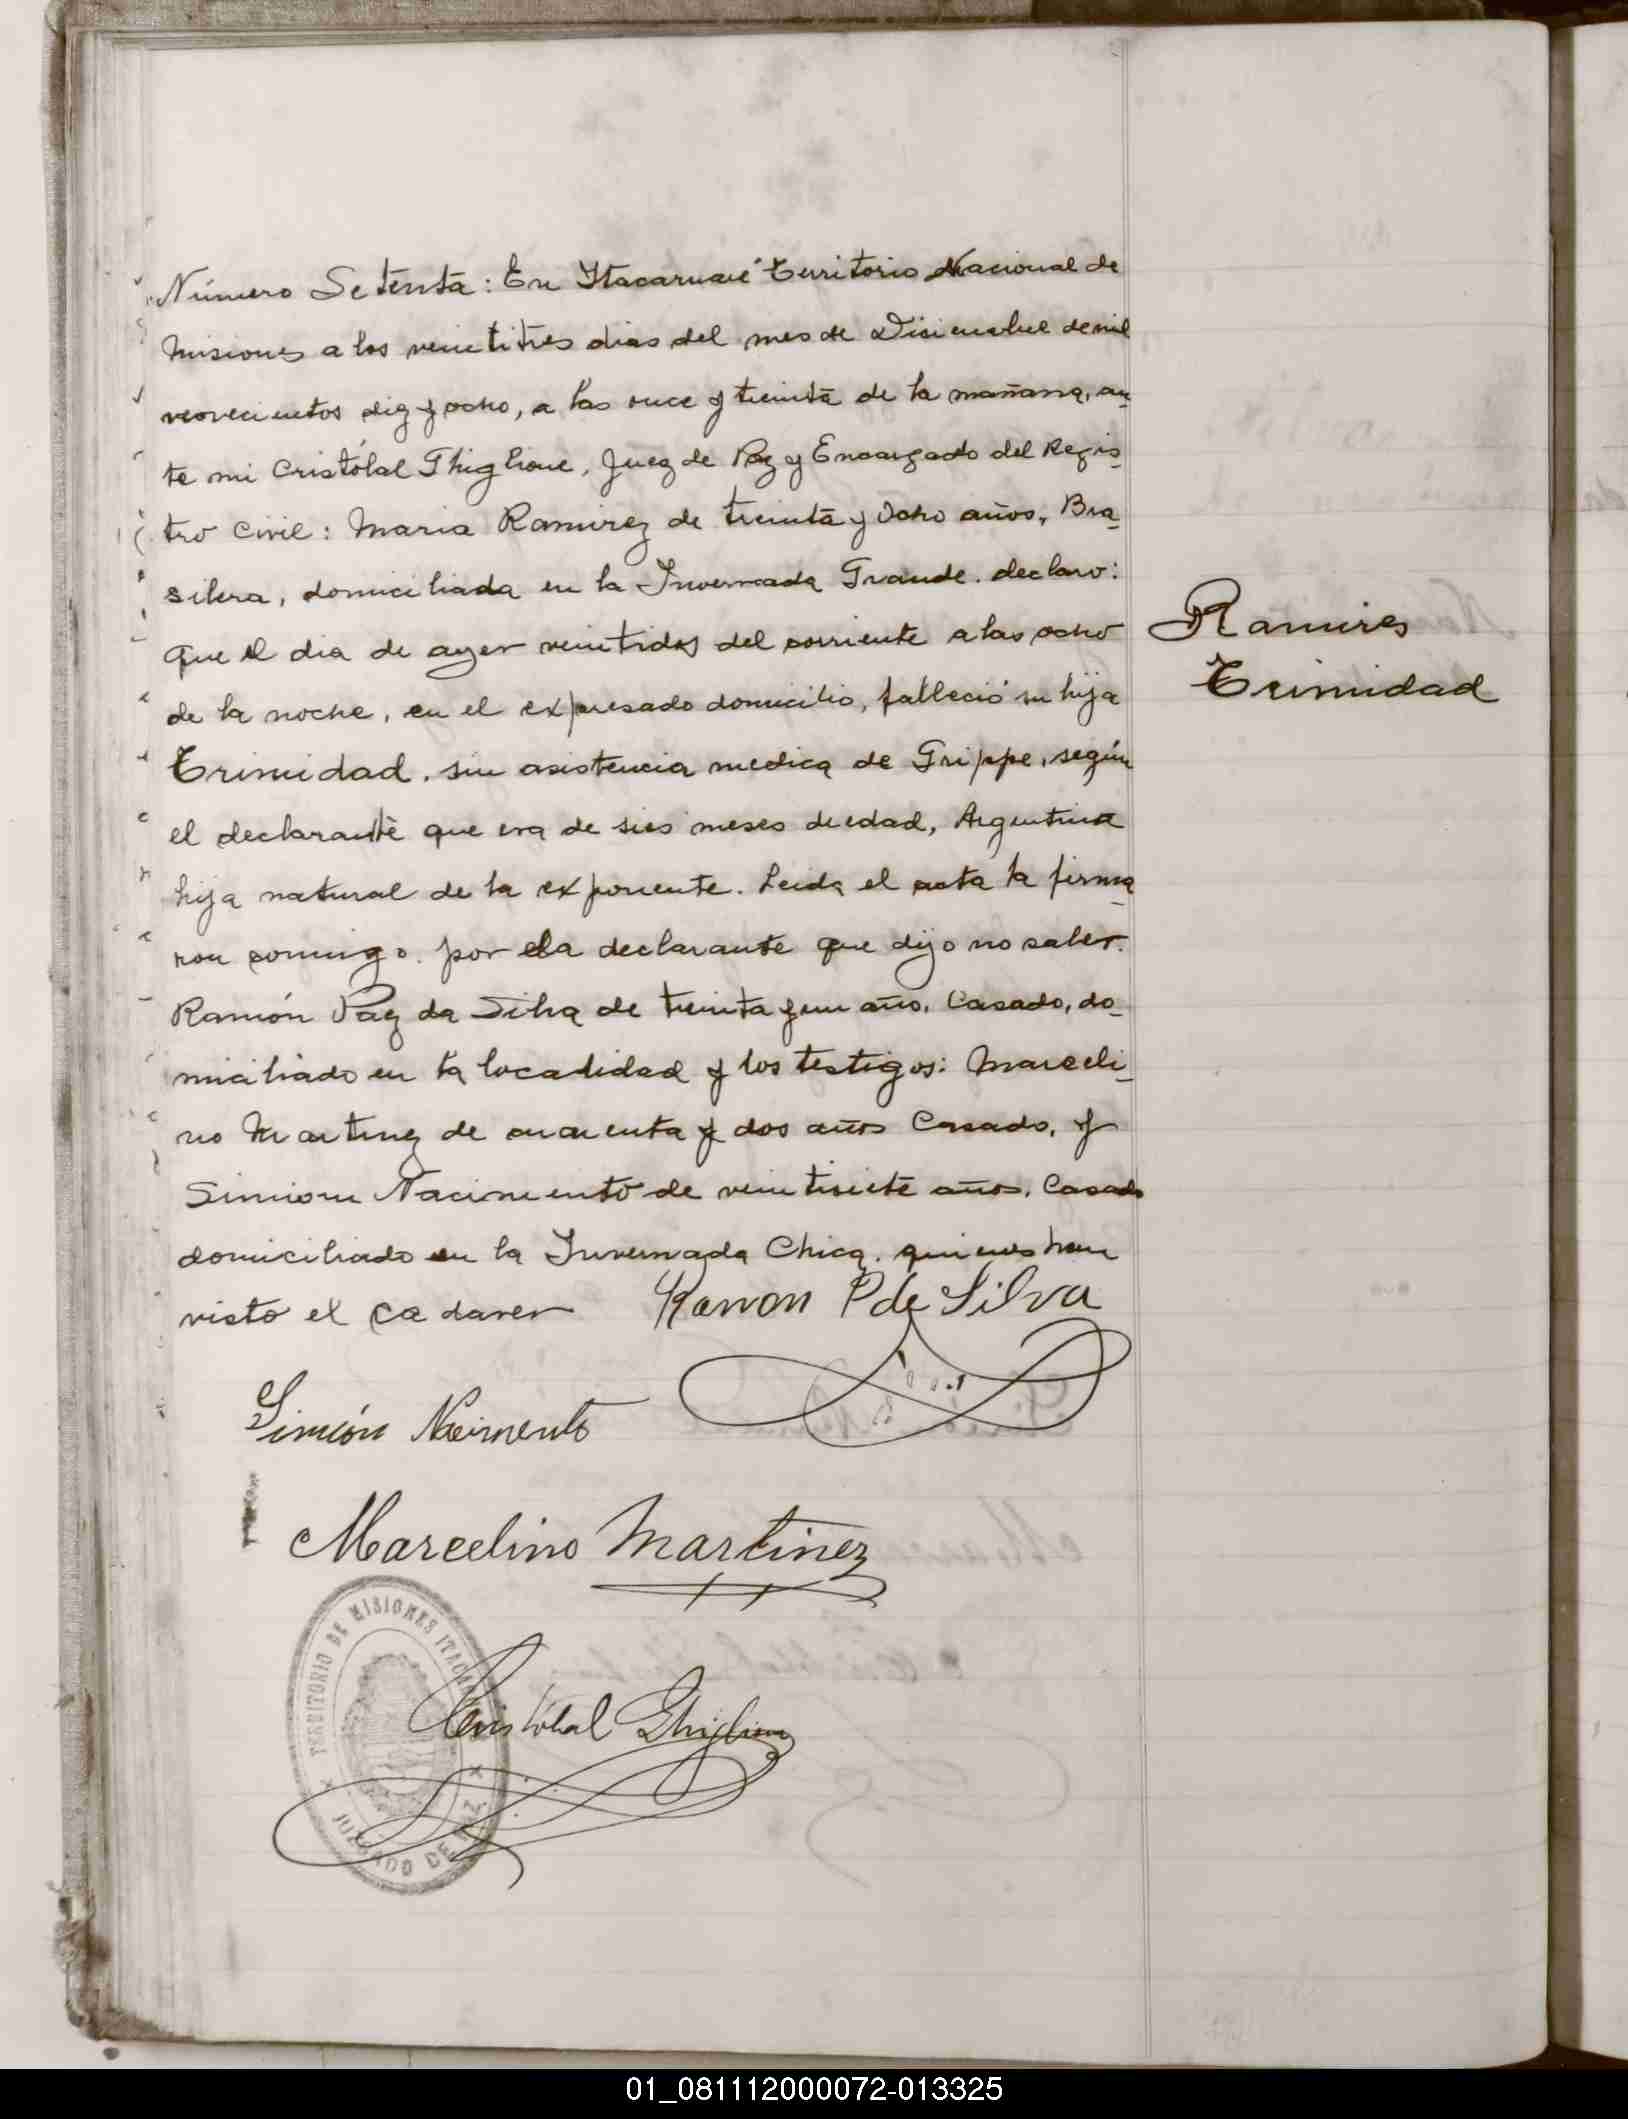 Número Setenta: En Itacaruaré Territorio Nacional de
Misiones a los veintitres dias del mes de Diciembre de mil
novecientos diez y ocho, a las once y treinta de la mañana, an_
te mi Cristóbal Ghiglione, Juez de Paz y Encargado del Regis_
tro Civil: Maria Ramirez de treinta y ocho años, Bra_
silera, domiciliada en la Invernada Grande. declaro:
que el dia de ayer veintidos del corriente a las ocho
de la noche, en el expresado domicilio, falleció su hija
Trinidad. sin asistencia medica de Grippe, según
el declarante que era de sies meses de edad, Argentina
hija natural de la exponente. Leida el acta la firma_
ron comigo. por ella declarante que dijo no saber.
Ramón Paz da Silva de treinta y un año. Casado, do_
miciliado en la localidad y los testigos: Marceli_
no Martinez de cuarenta y dos años Casado, y
Simion Nacimento de veintisiete años. Casado
domiciliado en la Invernada Chica. quienes han
visto el cadaver
Ramon P de Silva
Ramires
Trinidad
Simeón Nacimento
Marcelino Martinez
TERRITORIO DE MISIONES
Cristóbal Ghiglione
JUZGADO DE PAZ
01_081112000072-013325